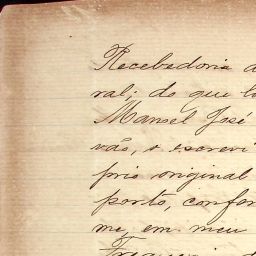 Recebedoria d
ral; do que la
Manoel José
vão, o escrevi
prio original
porto, confor
me, em meu
Freguezia d